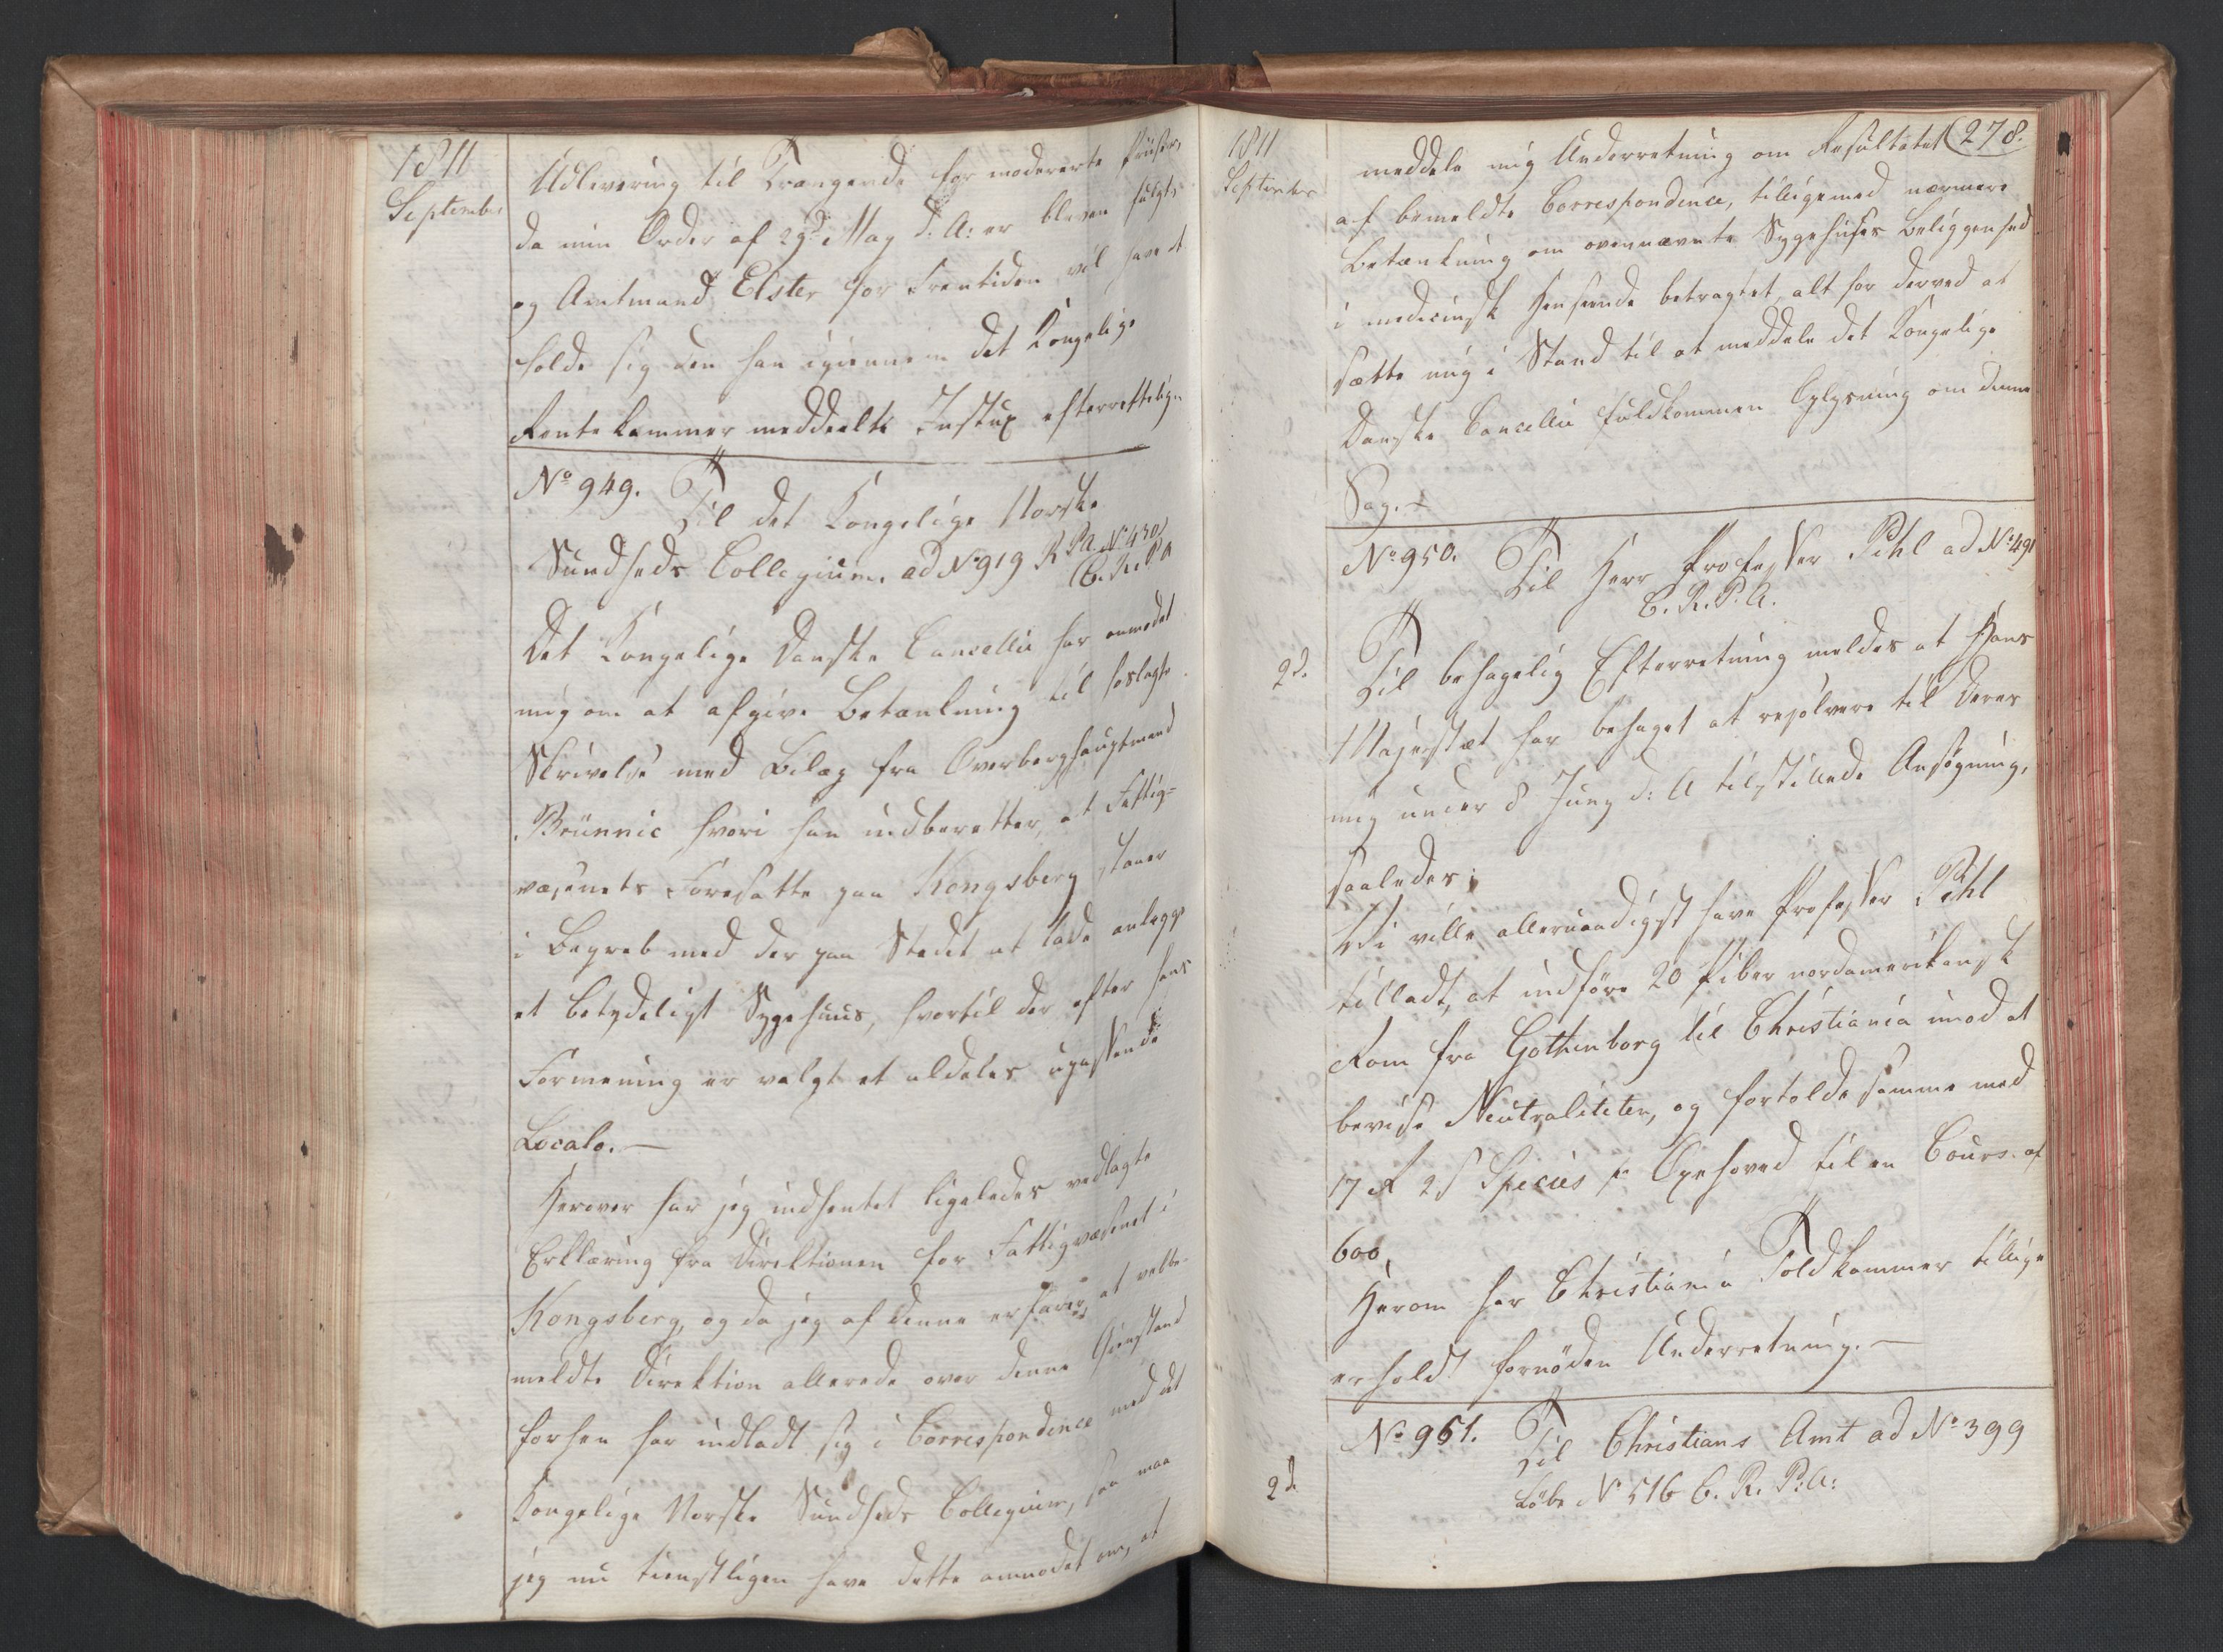 1811
September
Udlevering til Trængende for modererte Priiser,
da min Ordre af 29d. May d: A: er bleven fulgt,
og Amtmand Elster for Fremtiden vil have at
holde sig den ham igiennem det Kongelige
Rentekammer meddeelte Instux efterrettelig.
No 949. Til det Kongelige Norske
Sundheds Collegium. ad No 919 R P A. No 430
C. R. P. A
Det Kongelige Danske Cancellie har anmodet
mig om at afgive Betænkning til hoslagte
Skrivelse med Bilag fra Overberghauptmand
Brünnic hvori han indberetter, at Fattig-
væsenets Foresatte paa Kongsberg staaer
i Begreb med der paa Stedet at lade anlægge
et betydeligt Sygehuus, hvortil der efter hans
Formening er valgt et aldeles upassende
Locale. —
Herover har jeg indhentet ligeledes vedlagte
Erklæring fra Direktionen for Fattigvæsenet i
Kongsberg, og da jeg af denne erfarer, at velbe-
meldte Direktion allerede over denne Gienstand
forhen har indladt sig i Correspondence med det
Kongelige Norske Sundheds Collegium, saa maa
jeg nu tienstligen have dette anmodet om, at
1811
September
278.
meddele mig Underretning om Resultatet
af bemeldte Correspondence, tilligemed nærmere
Betænkning om ovennævnte Sygehuses Beliggenhed
i medicinsk Henseende betragtet, alt for derved at
sætte mig i Stand til at meddele det Kongelige
Danske Cancellie fuldkommen Oplysning om denne
Sag. —
No 950. Til Herr Professer Pihl ad No 491
C. R. P. A.
2d.
Til behagelig Efterretning meldes at Hans
Majestæt har behaget at resolvere til Deres
mig under 8 Juny d: A tilstillede Ansøgning,
saaledes:
Vi ville allernaadigst have Professer Pihl
tilladt, at indføre 20 Piber nordamerikansk
Rom fra Gothenborg til Christiania imod at
bevise Neutraliteten, og fortolde samme med
17 R 2 s Species pr Oxehoved til en Cours af
600,
Herom har Christiania Toldkammer tillige
erholdt fornöden Underretning. —
2d.
No 951. Til Christians Amt ad No 399
Löbe No 516 C. R. P. A: